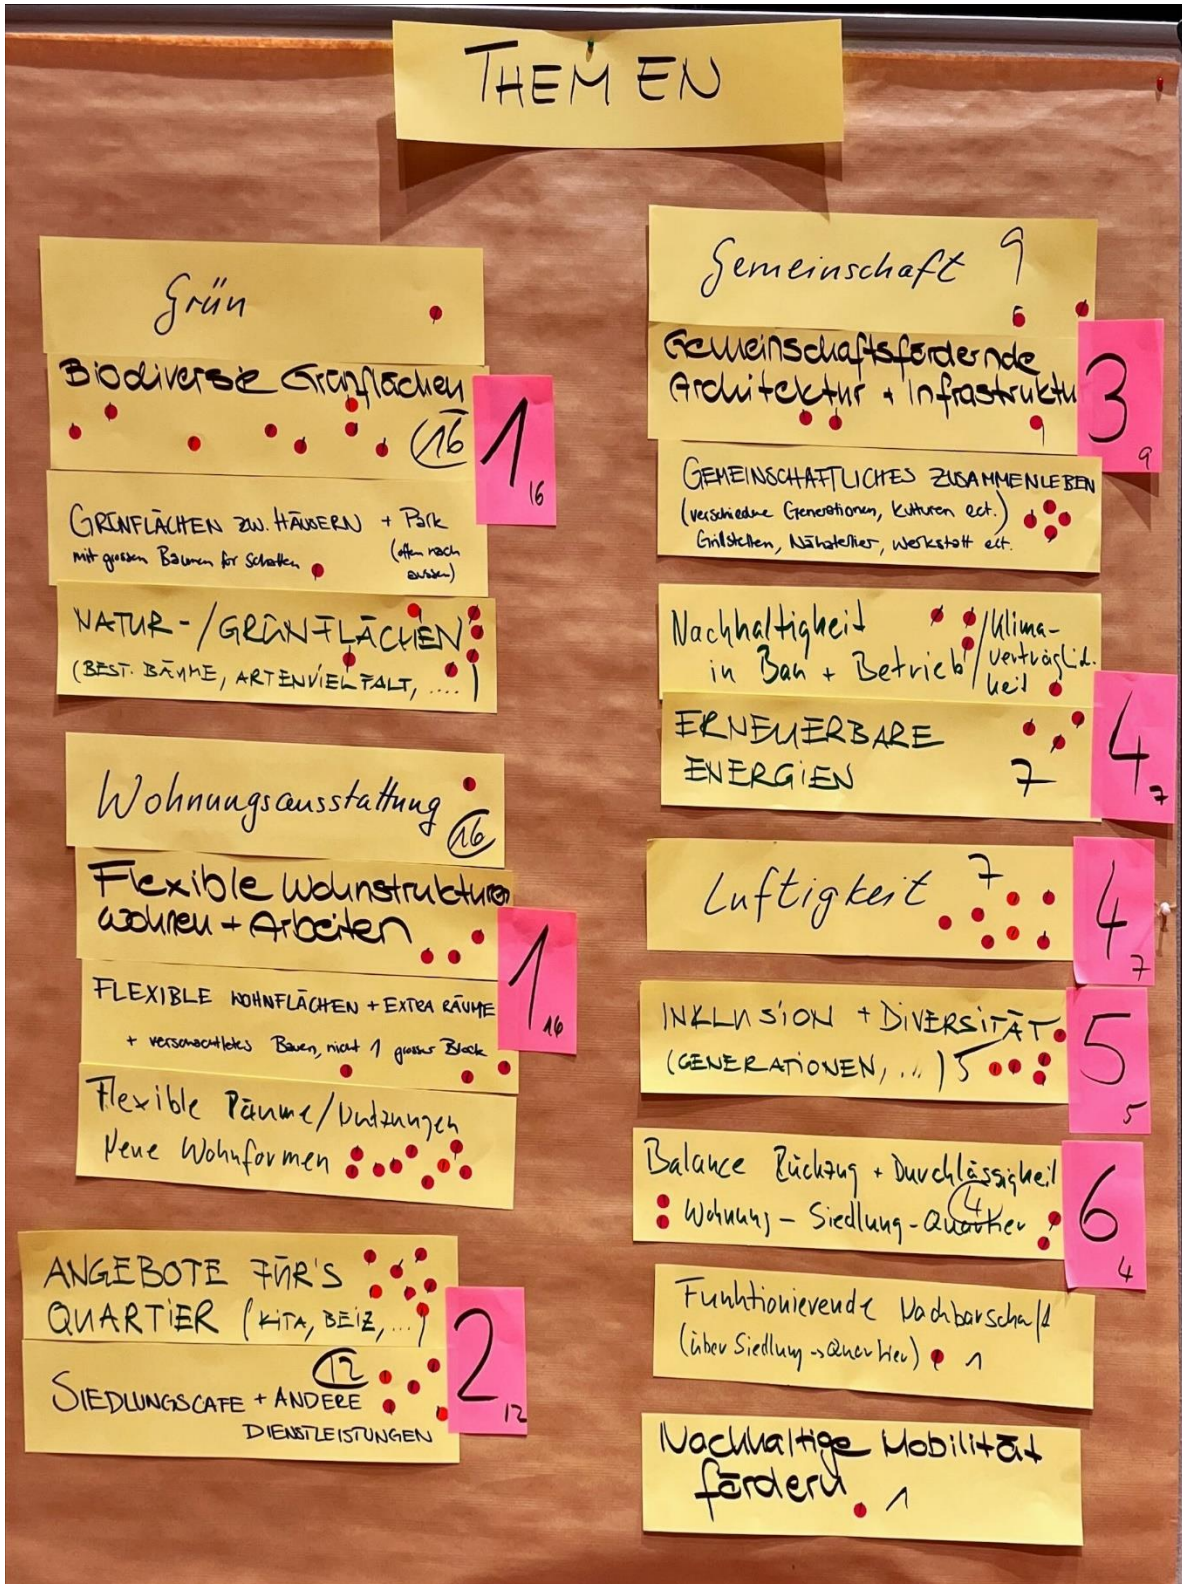 THEMEN
Grün
Biodiverse Grünflächen
16
1
16
GRÜNFLÄCHEN ZW. HÄUSERN + Park
mit grossen Bäumen für Schatten (offen nach
aussen)
NATUR-/GRÜNFLÄCHEN
(BEST. BÄUME, ARTENVIELFALT, ....)
Wohnungsausstattung
16
Flexible Wohnstrukturen
wohnen + Arbeiten
1
16
FLEXIBLE WOHNFLÄCHEN + EXTRA RÄUME
+ verschachteltes Bauen, nicht 1 grosser Block
Flexible Räume/Nutzungen
Neue Wohnformen
ANGEBOTE FÜR'S
QUARTIER (KITA, BEIZ, ...)
2
12
12
SIEDLUNGSCAFE + ANDERE
DIENSTLEISTUNGEN
Gemeinschaft 9
Gemeinschaftsfördernde
Architektur + Infrastruktu
3
9
GEMEINSCHAFTLICHES ZUSAMMENLEBEN
(verschiedene Generationen, Kulturen ect.)
Grillstellen, Nähatelier, Werkstatt ect.
Nachhaltigkeit
in Bau + Betrieb
/Klima-
verträglich-
keit
ERNEUERBARE
ENERGIEN 7
4
7
Luftigkeit 7
4
7
INKLUSION + DIVERSITÄT
(GENERATIONEN, ...) 5
5
5
Balance Rückzug + Durchlässigkeit
4
Wohnung - Siedlung - Quartier
6
4
Funktionierende Nachbarschaft
(über Siedlung -> Quartier) 1
Nachhaltige Mobilität
fördern 1